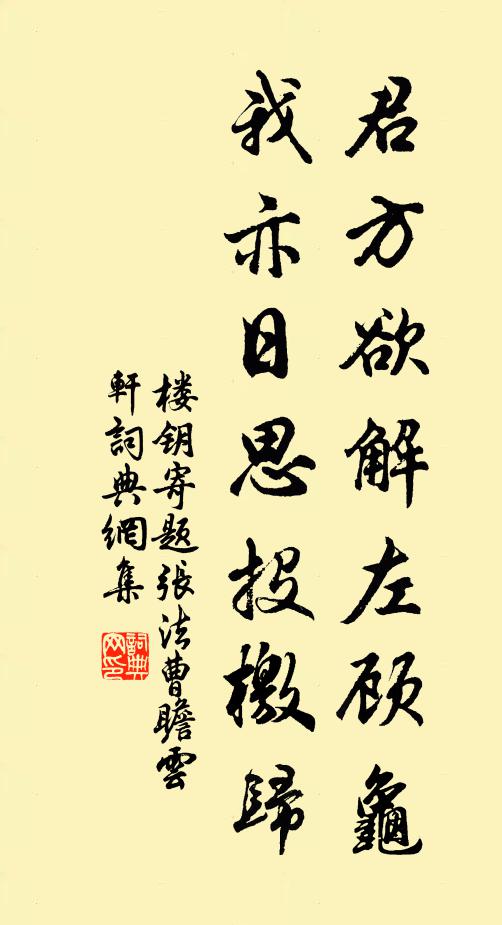 君方欲解左顾龜
我亦日思投檄歸
楼钥寄题張法曹瞻雲
軒詞典網集
詞典網印